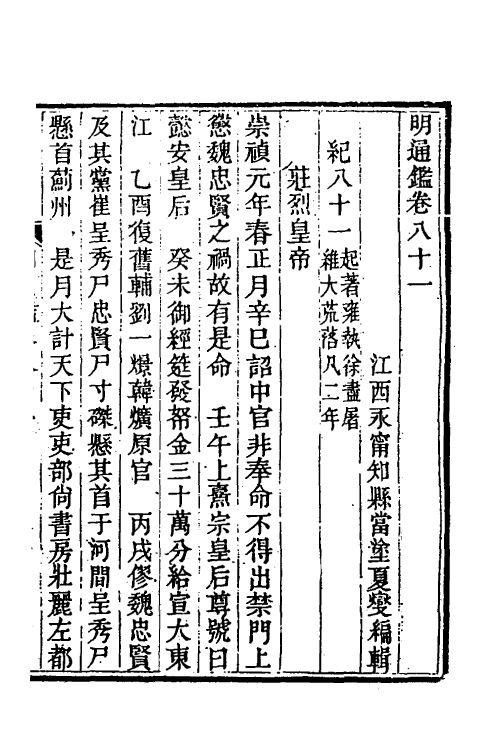 明通鑑卷八十一
江西永甯知縣當塗夏燮編輯
紀八十一起著雍執徐盡屠
維大荒落凡二年
莊烈皇帝
崇禎元年春正月辛巳詔中官非奉命不得出禁門上
懲魏忠賢之禍故有是命　壬午上熹宗皇后尊號曰
懿安皇后　癸未御經筵發帑金三十萬分給宣大東
江　乙酉復舊輔劉一燝韓爌原官　丙戌僇魏忠賢
及其黨崔呈秀尸忠賢尸寸磔懸其首于河間呈秀尸
懸首薊州　是月大計天下吏吏部尙書房壯麗左都